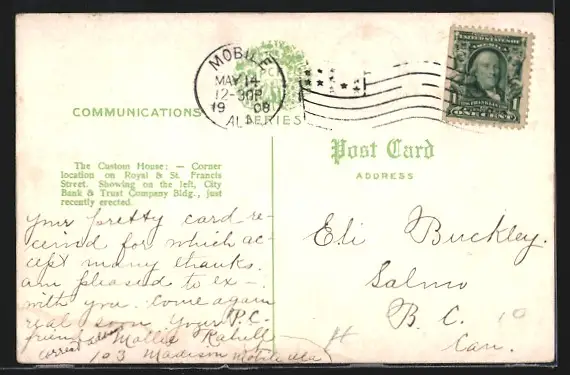 MOBILE
MAY 14
12-30P
1908
ALA
SERIES
UNITED STATES OF AMERICA
1
ONE CENT
COMMUNICATIONS
Post Card
ADDRESS
The Custom House: — Corner
location on Royal & St. Francis
Street. Showing on the left, City
Bank & Trust Company Bldg., just
recently erected.
your pretty card re-
ceived for which ac-
cept many thanks.
am pleased to ex-
with you. Come again
real soon Your P.C.
friend Mollie
103 Madison Mobile Ala
Eli Buckley.
Salmo
B. C.
Can.
10